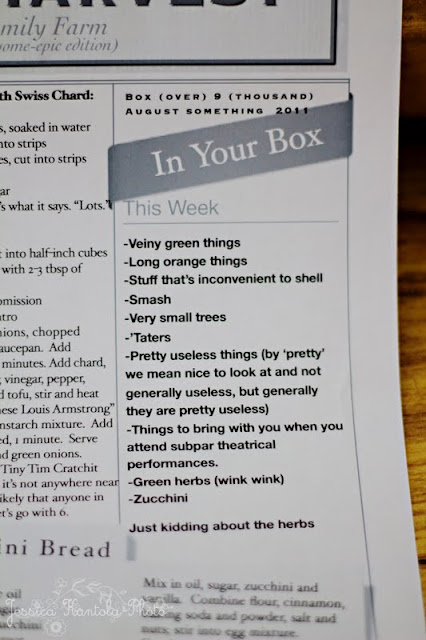 HARVEST
amily Farm
ome-epic edition)
th Swiss Chard:
s, soaked in water
nto strips
es, cut into strips
ar
's what it says. "Lots."
t into half-inch cubes
with 2-3 tbsp of
omission
ntro
nions, chopped
aucepan. Add
minutes. Add chard,
, vinegar, pepper,
d tofu, stir and heat
nese Louis Armstrong"
nstarch mixture. Add
ed, 1 minute. Serve
nd green onions.
Tiny Tim Cratchit
it's not anywhere near
ikely that anyone in
et's go with 6.
ini Bread
Box (over) 9 (thousand)
August something 2011
In Your Box
This Week
-Veiny green things
-Long orange things
-Stuff that's inconvenient to shell
-Smash
-Very small trees
-'Taters
-Pretty useless things (by 'pretty'
we mean nice to look at and not
generally useless, but generally
they are pretty useless)
-Things to bring with you when you
attend subpar theatrical
performances.
-Green herbs (wink wink)
-Zucchini
Just kidding about the herbs
Mix in oil, sugar, zucchini and
vanilla. Combine flour, cinnamon,
baking soda and powder, salt and
nuts, stir into egg mixture.
Jessica Hantoly Photo